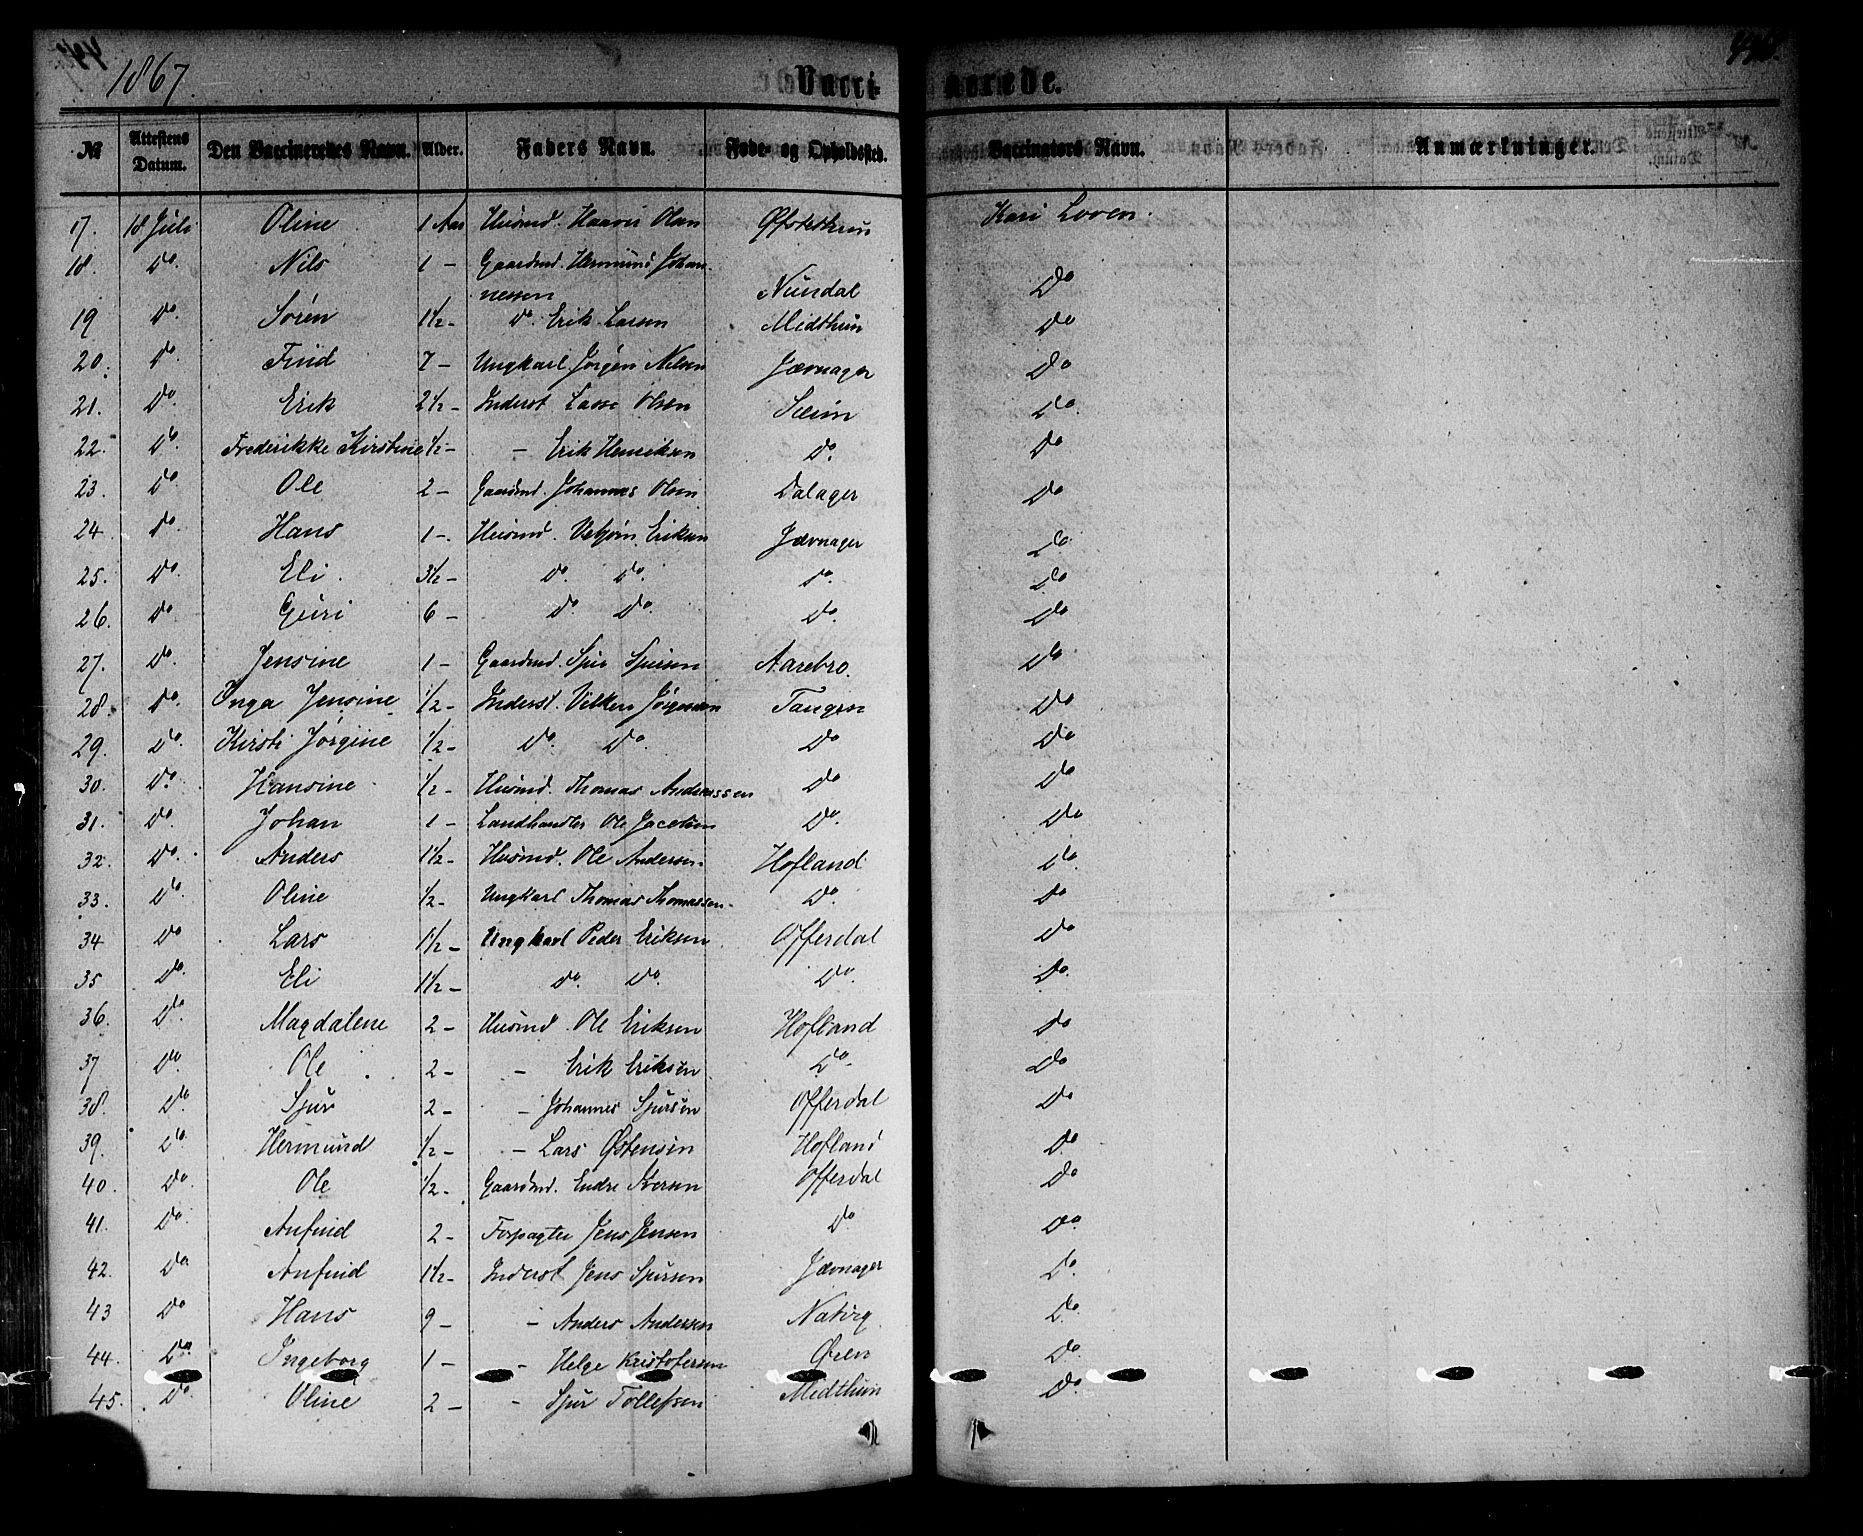 1867.
Vacci- nerede.
№ Attestens Datum. Den Vaccineredes Navn. Alder. Faders Navn. Føde- og Opholdssted. Vaccinators Navn. Anmærkninger.
17. 18 Juli Oline 1 Aar Husmd. Haavar Olsen Kari Loven.
18. Do. Nils 1 - Gaardmd. Hermund Johan-
nessen Nundal Do
19 Do. Søren 1½- Do. Erik Larsen Midthun Do
20. Do. Find 7 - Ungkarl Jørgen Nilsen Jævnager Do
21. Do. Erik 2½- Inderst Lasse Olsen Seim Do.
22. Do. Frederikke Kirstine ½- - Erik Henriksen Do. Do
23. Do Ole 2 - Gaardmd. Johannes Olsen Dalager Do
24 Do. Hans 1 -. Husmd. Vebjørn Eriksen Jævnager Do.
25. Do. Eli. 3½ - Do. Do. Do. Do
26. Do. Guri 6 - Do. Do. Do. Do
27. Do. Jensine 1 - Gaardmd. Sjur Sjursen Aarebro. Do
28. Do. Inga Jensine ½- Inderst. Villken Jørgensen Tangen Do
29. Do. Kirsti Jørgine ½- Do. Do. Do Do
30. Do. Hansine ½- Husmd. Thomas Anderssen Do Do
31. Do. Johan 1 - Landhandler Ole Jacobsen Do. Do
32. Do. Anders 1½- Husmd. Ole Andersen. Hofland Do.
33. Do Oline ½- Ungkarl Thomas Thomassen. Do. Do
34 Do Lars 1½- Ungkarl Peder Eriksen Offerdal Do
35 Do Eli 1½- Do. Do. Do. Do.
36. Do. Magdalene 2 - Husmd. Ole Eriksen Hofland Do
37 Do. Ole 2 - - Erik Eriksen Do. Do
38. Do Sjur 2 - - Johannes Sjursen Offerdal Do
39. Do. Hermund ½- - Lars Østensen Hofland Do
40. Do. Ole ½- Gaardmd. Endre Iversen Offerdal Do
41. Do. Anfind 2 - Forpagter Jens Jensen Do. Do.
42. Do Anfind 1½- Inderst Jens Sjursen Jævnager Do.
43 Do Hans 9 - - Anders Andersen Natvig Do.
44. Do Ingeborg 1 - - Helge Kristofersen Øren Do.
45. Do Oline 2 - - Sjur Tollefsen Midthun Do.